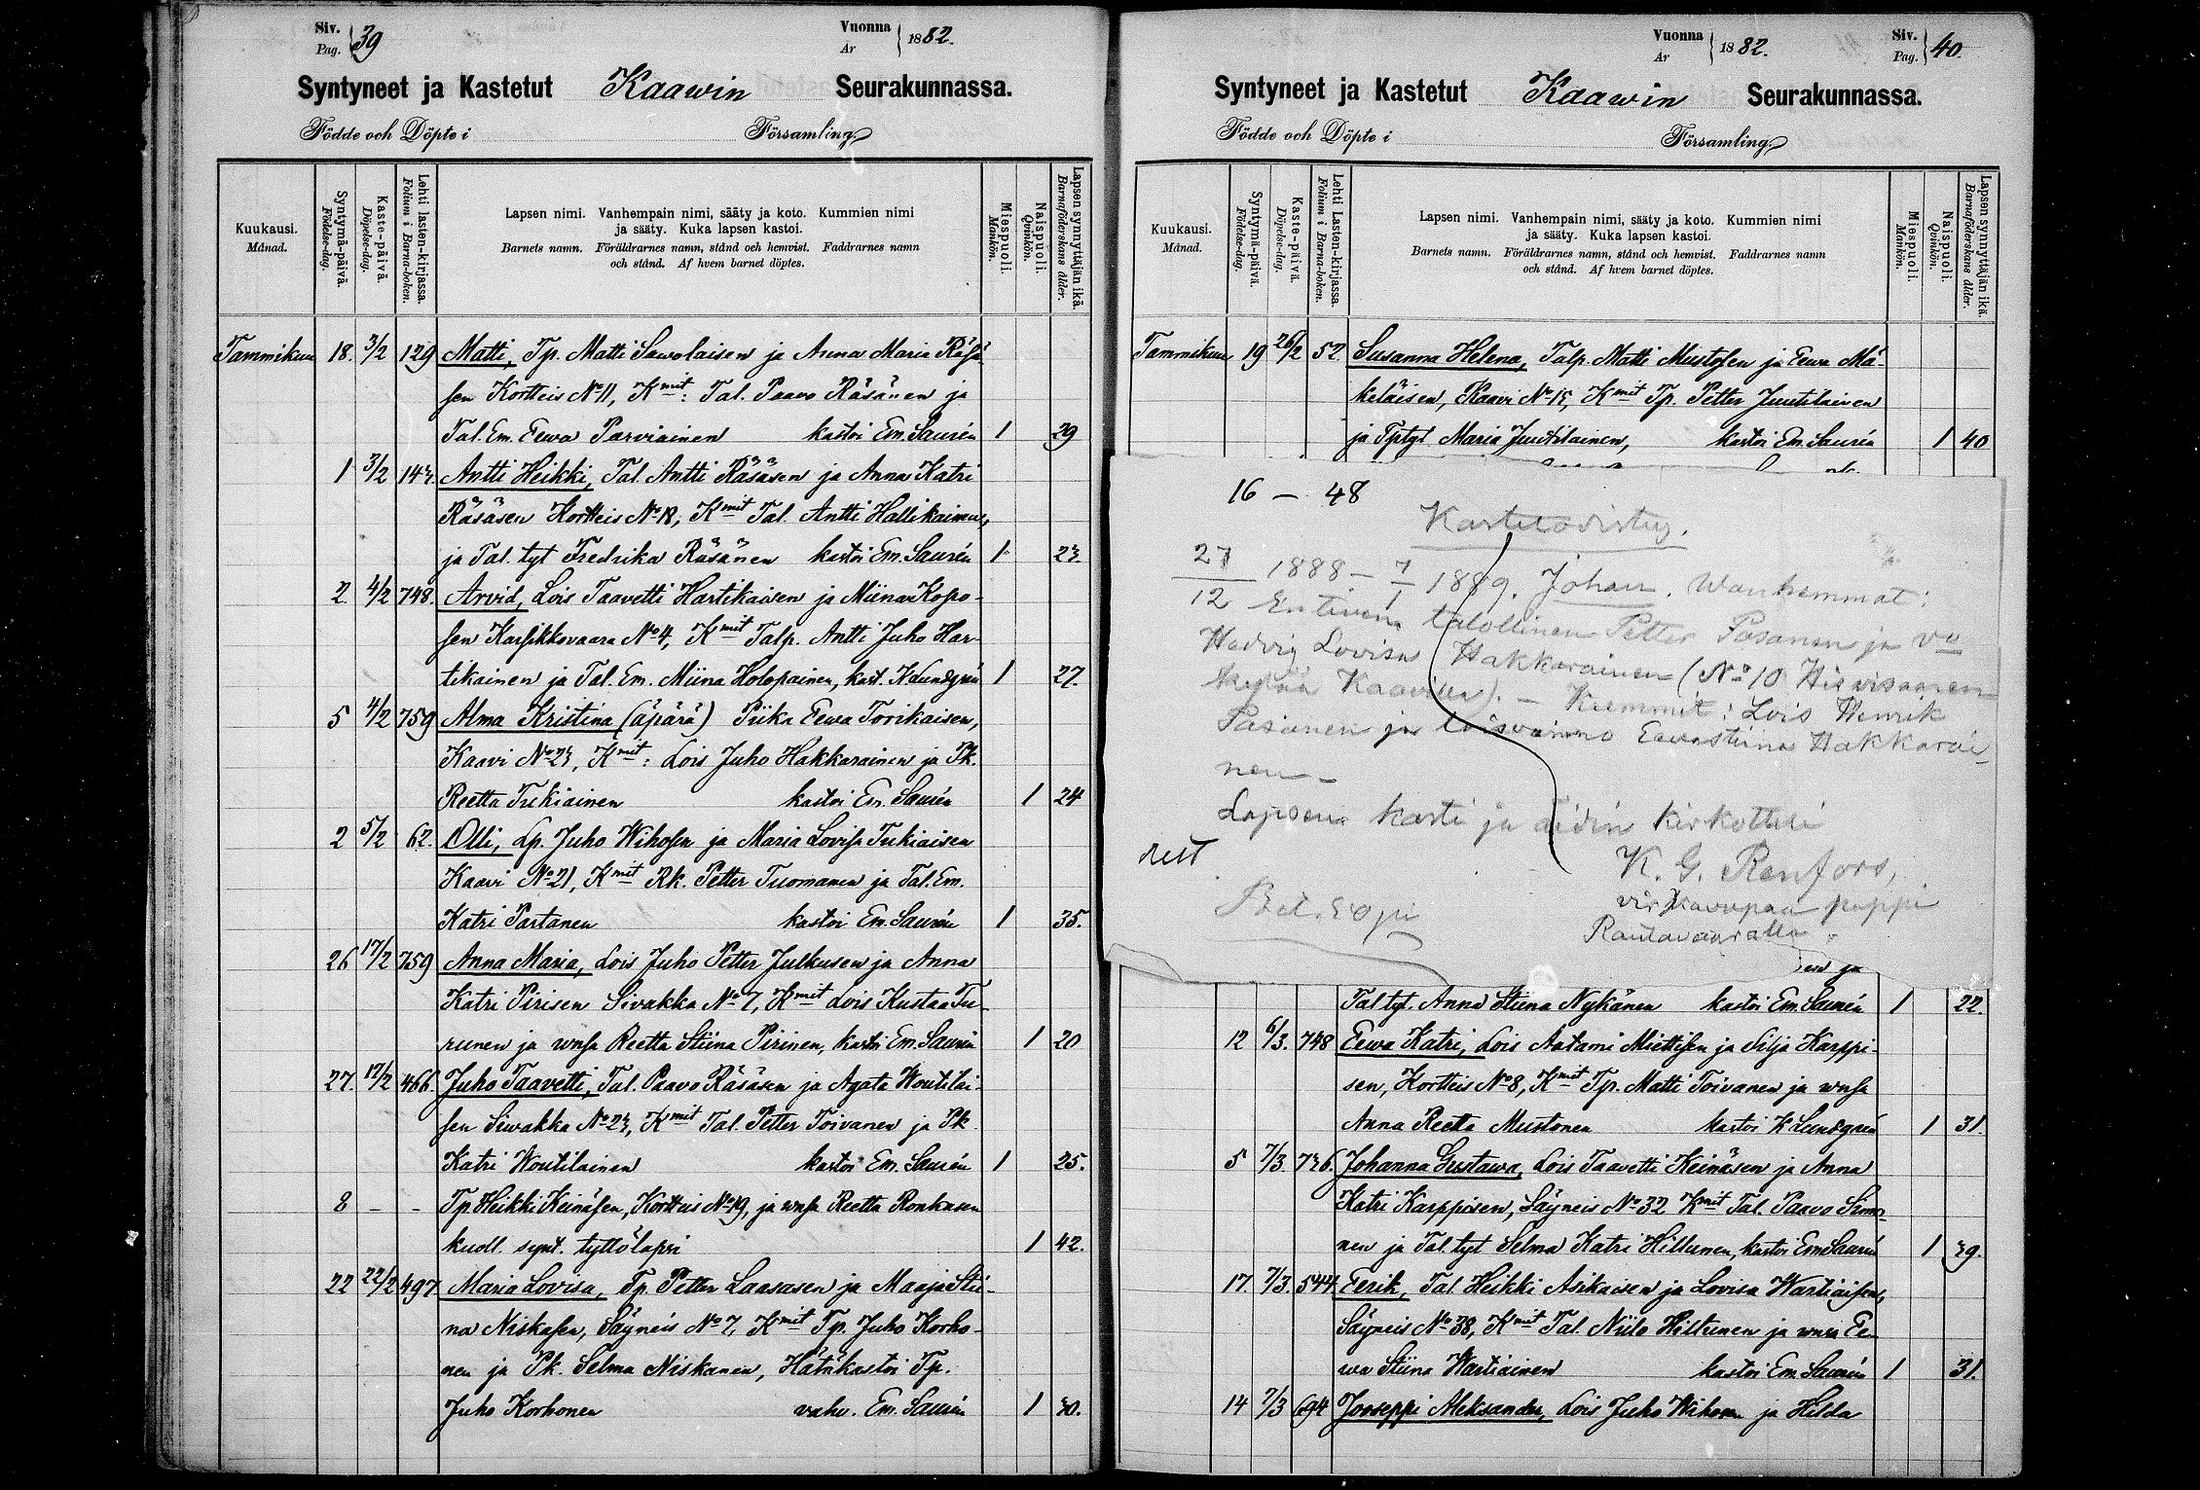 Siv.
Pag. 39
Vuonna
År 1882.
Syntyneet ja Kastetut Kaawin Seurakunnassa.
Födde och Döpte i Församling
Kuukausi.
Månad.
Syntymä-päivä.
Födelse-dag.
Kaste-päivä.
Döpelse-dag.
Lehti lasten-kirjassa.
Folium i Barna-boken.
Lapsen nimi. Vanhempain nimi, sääty ja koto. Kummien nimi
ja sääty. Kuka lapsen kastoi.
Barnets namn. Föräldrarnes namn, stånd och hemvist. Faddrarnes namn
och stånd. Af hvem barnet döptes.
Miespuoli.
Mankön.
Naispuoli.
Qvinkön.
Lapsen synnyttäjän ikä.
Barnaföderskans ålder.
Tammikuu 18. 3/2 129 Matti, Tp. Matti Sawolaisen ja Anna Maria Räsä-
sen Kortteis No 11, Kmit: Tal. Paavo Räsänen ja
Tal. Em. Eewa Parviainen kastoi Em. Saurén 1 29
1 3/2 143. Antti Heikki, Tal. Antti Räsäsen ja Anna Katri
Räsäsen Kortteis No 18, Kmit Tal. Antti Hallikainen,
ja Tal. tyt Fredrika Räsänen kastoi Em. Saurén 1 23.
2. 4/2 748. Arvid, Lois Taavetti Hartikaisen ja Miina Kopo-
sen Karsikkovaara No 4, Kmit Talp. Antti Juho Har-
tikainen ja Tal. Em. Miina Holopainen, kast. K Lundgrén 1 27.
5 4/2 759 Alma Kristina (äpärä) Piika Eewa Torikaisen,
Kaavi No 23, Kmit: Lois Juho Hakkarainen ja Pk.
Reetta Tukiainen kastoi Em. Saurén 1 24
2 5/2 62. Olli, Lp. Juho Wihosen ja Maria Lovisa Tukiaisen
Kaavi No 21, Kmit Rk. Petter Tuomanen ja Tal. Em.
Katri Partanen kastoi Em. Saurén 1 35.
26 17/2 759 Anna Maria, Lois Juho Petter Julkusen ja Anna
Katri Pirisen Sivakka No 7, Kmit Lois Kustaa Tu-
runen ja wnsa Reetta Stiina Pirinen, kastoi Em. Saurén 1 20
27. 17/2 466. Juho Taavetti, Tal. Paavo Räsäsen ja Agata Woutilai-
sen Siwakka No 23, Kmit Tal. Petter Toivanen ja Pk
Katri Woutilainen kastoi Em. Saurén 1 25.
8 - - Tp. Heikki Keinäsen, Kortteis No 19, ja wnsa Reetta Ronkasen
kuoll. synt. tyttölapsi 1 42.
22 22/2 497 Maria Lovisa, Tp. Petter Laasasen ja Maaja Stii-
na Niskasen, Säyneis No 7, Kmit Tp. Juho Korho-
nen ja Pk. Selma Niskanen, Hätäkastoi Tp.
Juho Korhonen vahv. Em. Saurén 1 30.
Vuonna
År 1882.
Siv.
Pag. 40.
Syntyneet ja Kastetut Kaawin Seurakunnassa.
Födde och Döpte i Församling
Kuukausi.
Månad.
Syntymä-päivä.
Födelse-dag.
Kaste-päivä.
Döpelse-dag.
Lehti Lasten-kirjassa.
Folium i Barna-boken.
Lapsen nimi. Vanhempain nimi, sääty ja koto. Kummien nimi
ja sääty. Kuka lapsen kastoi.
Barnets namn. Föräldrarnes namn, stånd och hemvist. Faddrarnes namn
och stånd. Af hvem barnet döptes.
Miespuoli.
Mankön.
Naispuoli.
Qvinkön.
Lapsen synnyttäjän ikä.
Barnaföderskans ålder.
Tammikuu 19 26/2 52. Susanna Helena, Talp. Matti Mustosen ja Eewa Mä-
keläisen, Kaavi No 15, Kmit Tp. Petter Juutilainen
ja Tptyt Maria Juutilainen, kastoi Em. Saurén 1 40
16 - 48
Kastetodistus.
27/12 1888 - 7/1 1889. Johan. Wanhemmat:
Entinen talollinen Petter Pasanen ja vo
Hedvig Lovisa Hakkarainen (No 10
Kaavilla). - Kummit: Lois Henrik
Pasanen ja loisvaimo Eevastiina Hakkarai-
nen -
Lapsen kasti ja äidin kirkotteli
K. G. Renfors,
virkavapaa pappi
Rautavaaralla.
en ja
Tal tyt. Anna Stiina Nykänen kastoi Em. Saurén 1 22.
12 6/3. 748 Eewa Katri, Lois Aatami Miettisen ja Silja Karppi-
sen, Kortteis No 8, Kmit Tp. Matti Toivanen ja wnsa
Anna Reetta Mustonen kastoi K Lundgrén 1 31.
5 7/3. 736. Johanna Gustawa, Lois Taavetti Keinäsen ja Anna
Katri Karppisen, Säyneis No 32 Kmit Tal. Paavo Simo-
nen ja Tal. tyt Selma Katri Hiltunen, kastoi Em Saurén 1 39.
17. 7/3. 544. Eerik, Tal. Heikki Asikaisen ja Lovisa Wartiaisen,
Säyneis No 38, Kmit Tal. Niilo Hiltunen ja wnsa Ee-
wa Stiina Wartiainen kastoi Em. Saurén 1 31.
14 7/3 694 Jooseppi Aleksander, Lois Juho Wihosen ja Hilda